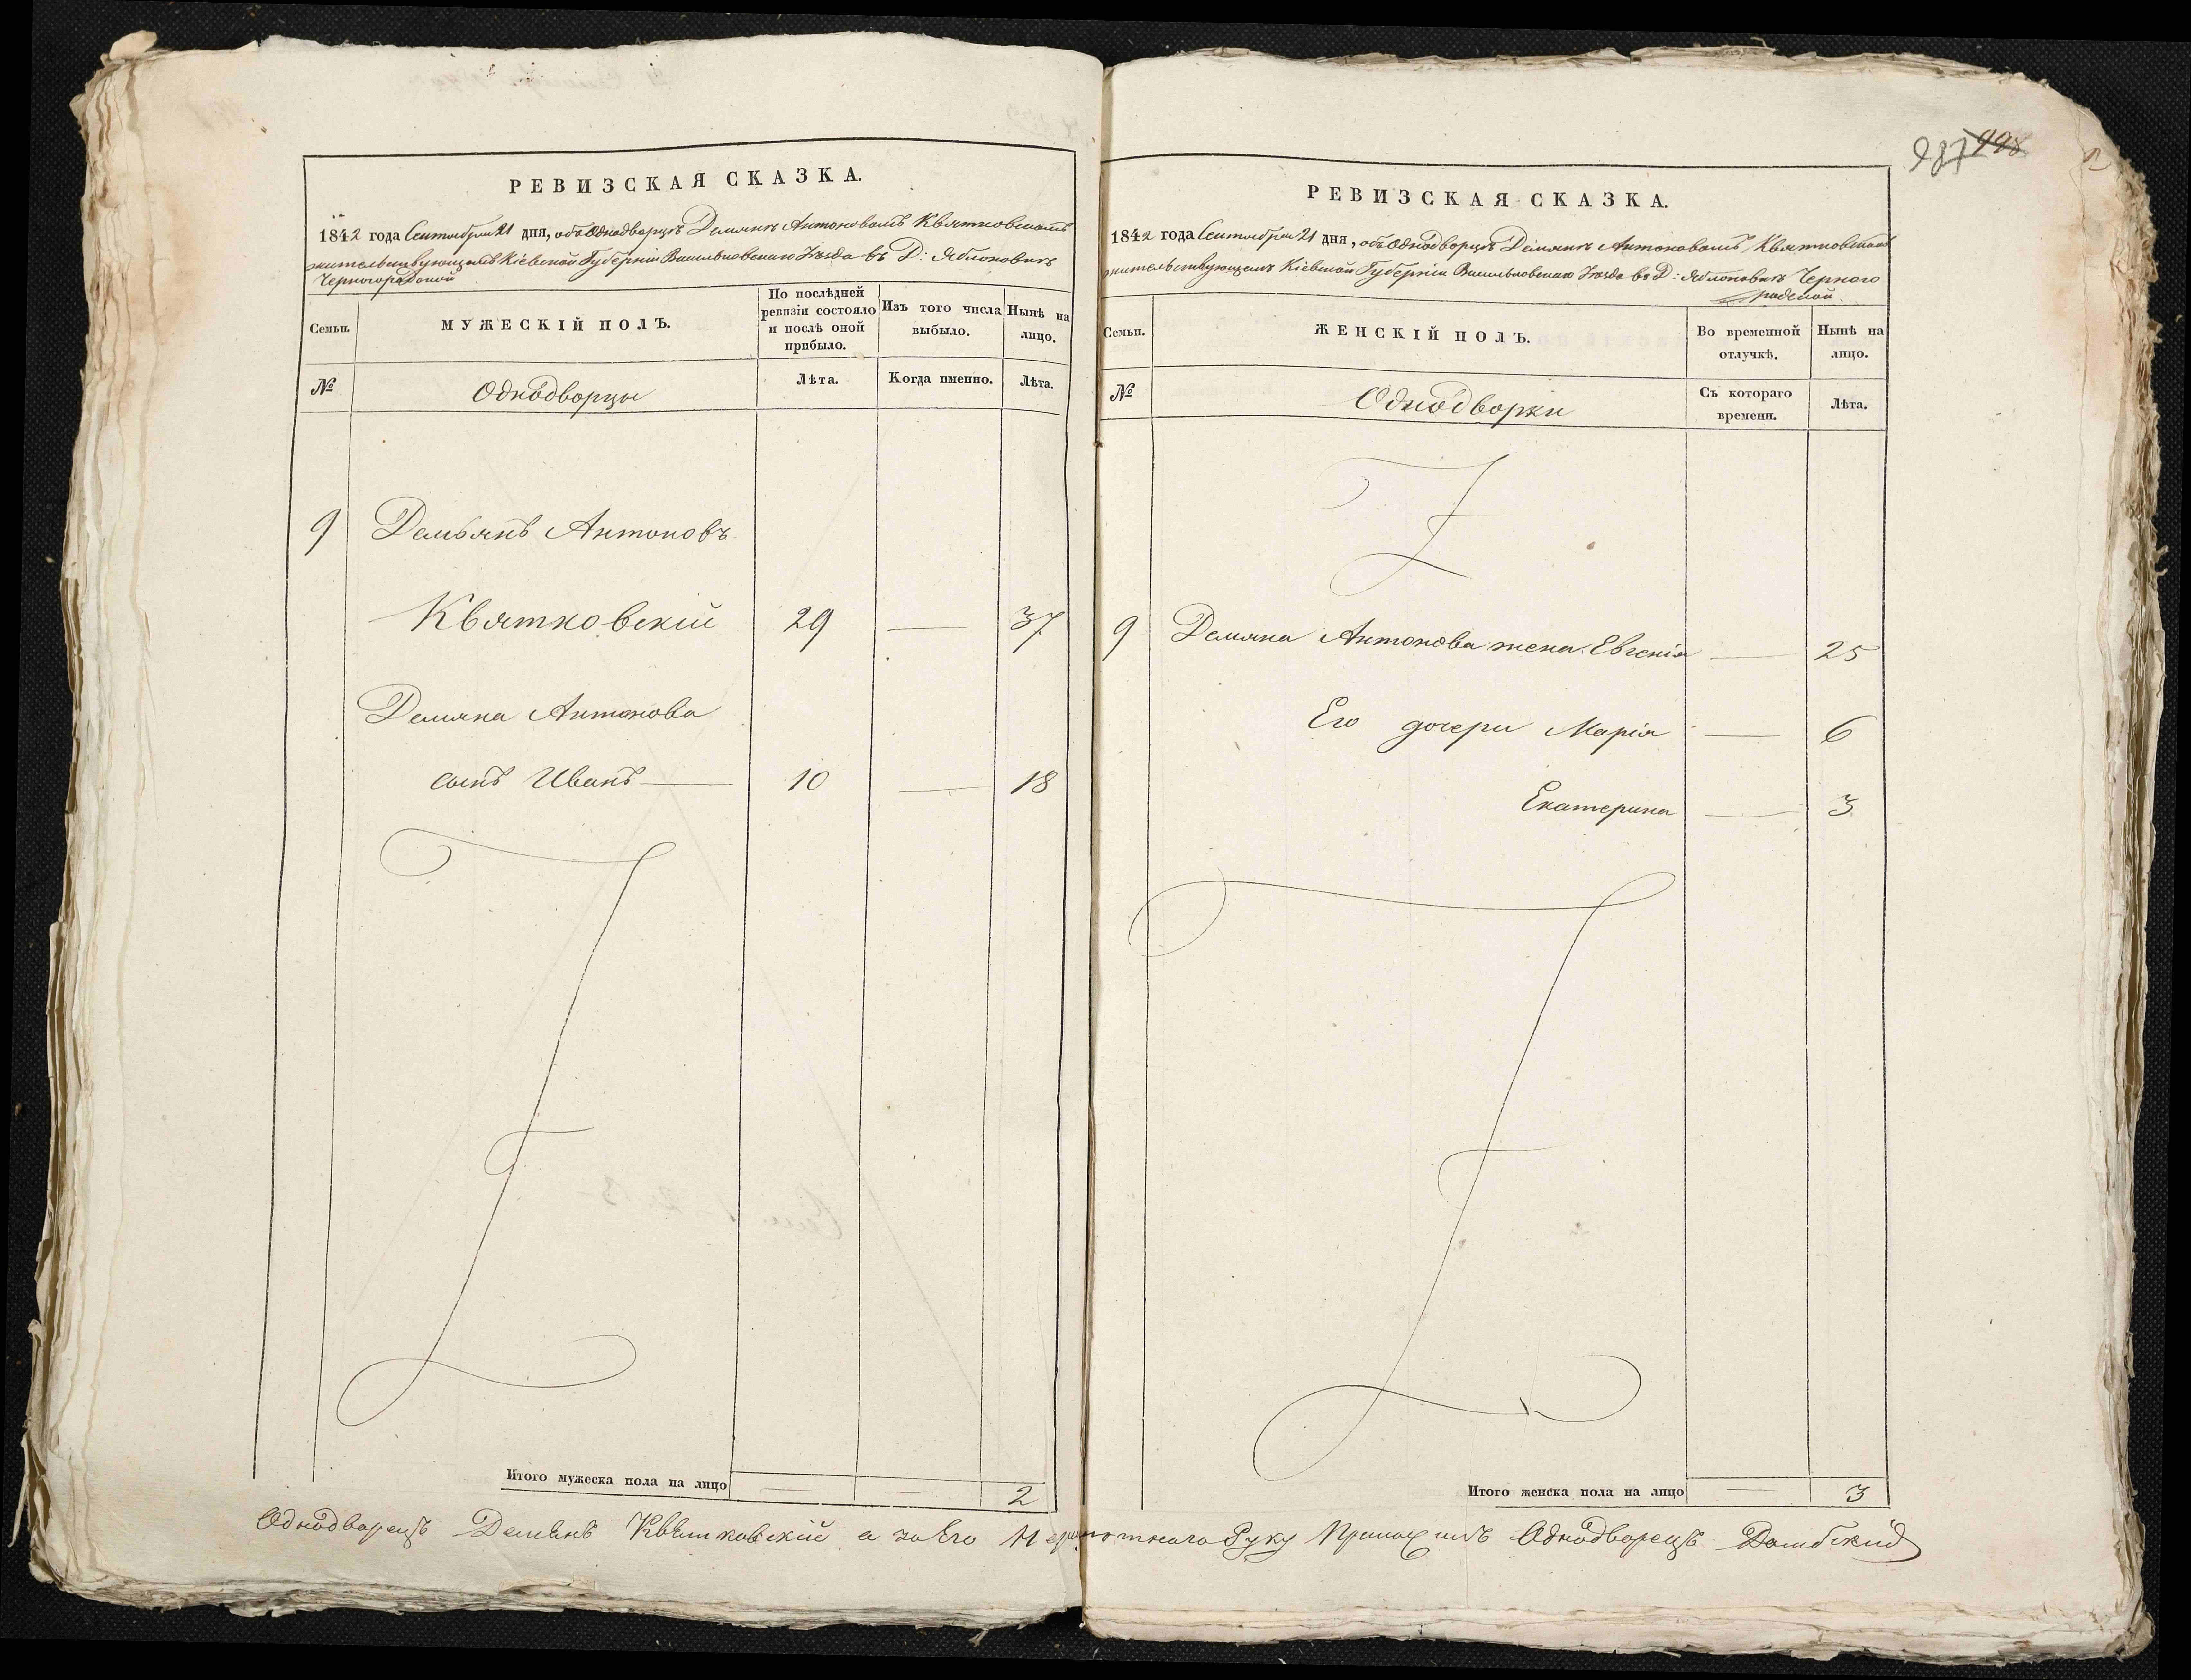 РЕВИЗСКАЯ СКАЗКА.
1842 года Сентября 21 дня, объ Однодворцѣ Демянѣ Антоновомъ Квятковскомъ
жительствующемъ Кіевской Губерніи Васильковскаго Уѣзда въ Д: Яблоновкѣ
Черногородской
Семьи.
МУЖЕСКІЙ ПОЛЪ.
По послѣдней
ревизіи состояло
и послѣ оной
прибыло.
Изъ того числа
выбыло.
Нынѣ на
лицо.
№
Однодворцы
Лѣта.
Когда именно.
Лѣта.
9 Демьянъ Антоновъ
Квятковскій 29 — 37
Демяна Антонова
сынъ Иванъ — 10 — 18
Итого мужеска пола на лицо — — 2
287 998
РЕВИЗСКАЯ СКАЗКА.
1842 года Сентября 21 дня, объ Однодворцѣ Демянѣ Антоновомъ Квятковскомъ
жительствующемъ Кіевской Губерніи Васильковскаго Уѣзда въ Д: Яблоновкѣ Черного
родской.
Семьи.
ЖЕНСКІЙ ПОЛЪ.
Во временной
отлучкѣ.
Нынѣ на
лицо.
№
Однодворки
Съ котораго
времени.
Лѣта.
9 Демяна Антонова жена Евгенія — 25
Его дочери Марія — 6
Екатерина — 3
Итого женска пола на лицо — 3
Однодворецъ Демянъ Квятковскій а за Его Неграмотнаго Руку Приложилъ Однодворецъ Домбскій